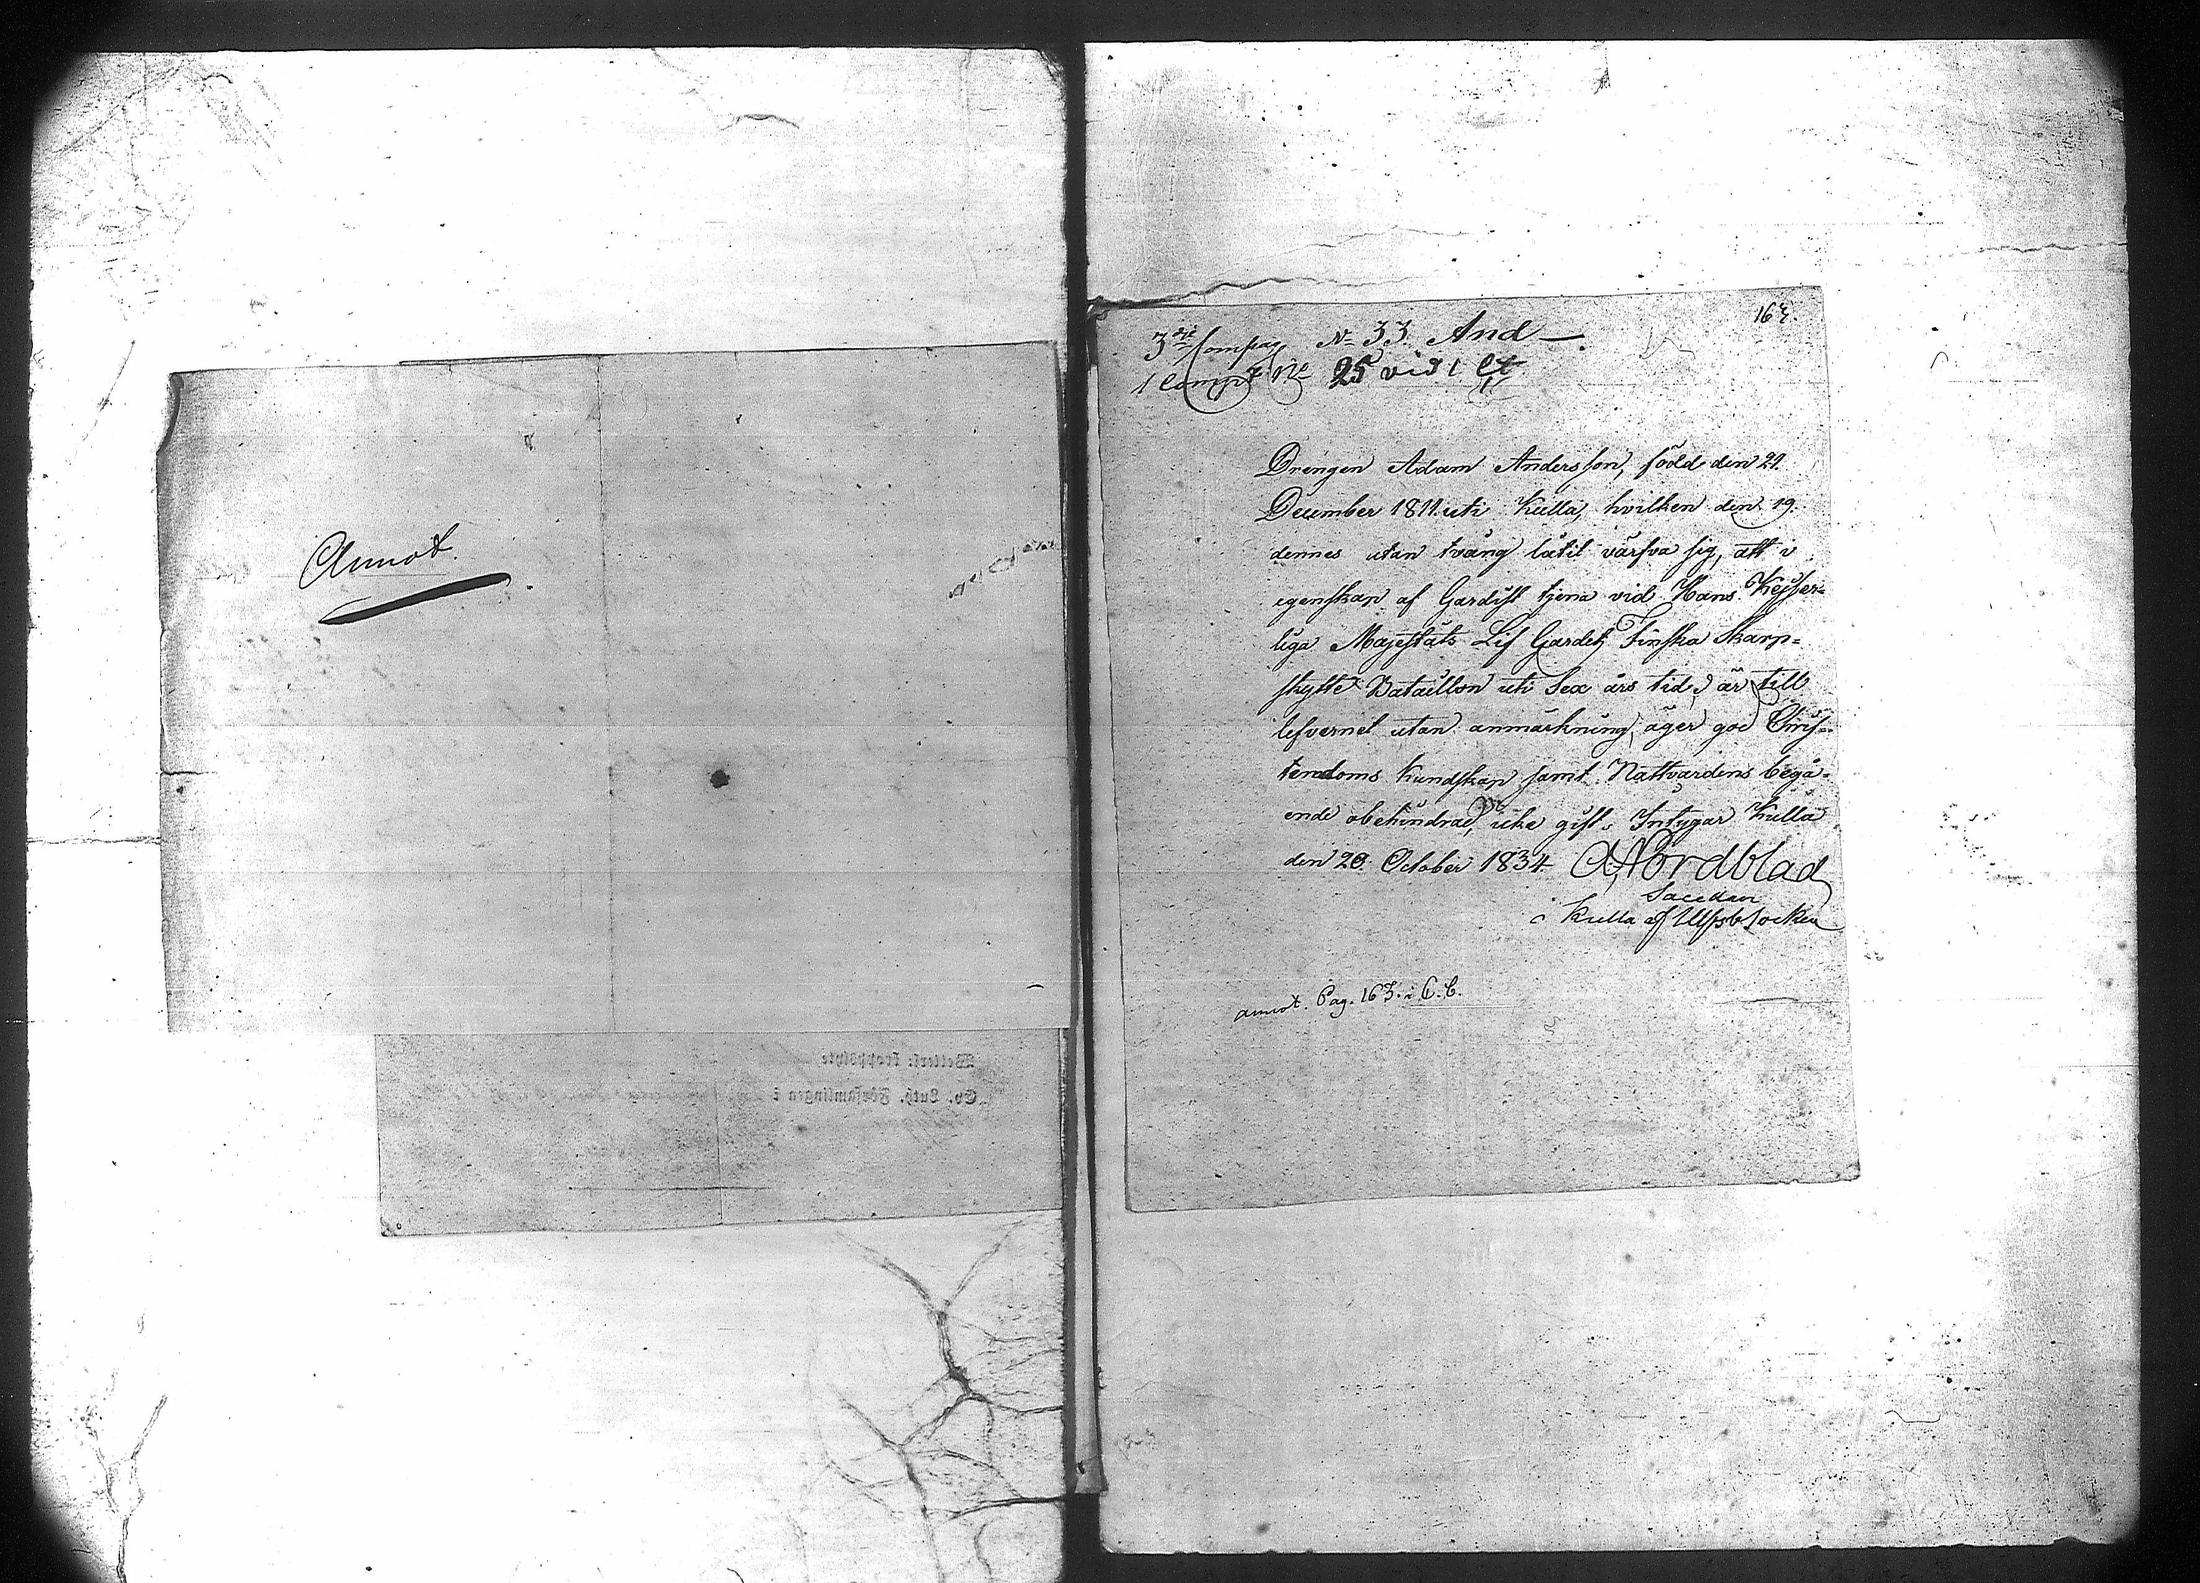 Annot.
163.
3die Compag. No 33 And—.
1 Comp. No 25 vid 1 Ct
Drengen Adam Andersson, född den 21.
December 1811. uti Kulla, hvilken den 19.
dennes utan tvång låtit värfva sig, att i
egenskap af Gardist tjena vid Hans Kejser=
liga Majestäts Lif Gardes Finska Skarp=
skytte Bataillon uti Sex års tid, är till
lefvernet utan anmärkning, äger god Chris=
tendoms kundskap samt Nattvardens begå=
ende obehindrad, icke gift. Intygar Kulla
den 20. October 1834. A. Nordblad
Sacellan
i Kulla af Ulfsb Socken
annot. Pag. 163. i C.b.
Ev. Luth. Församlingen i